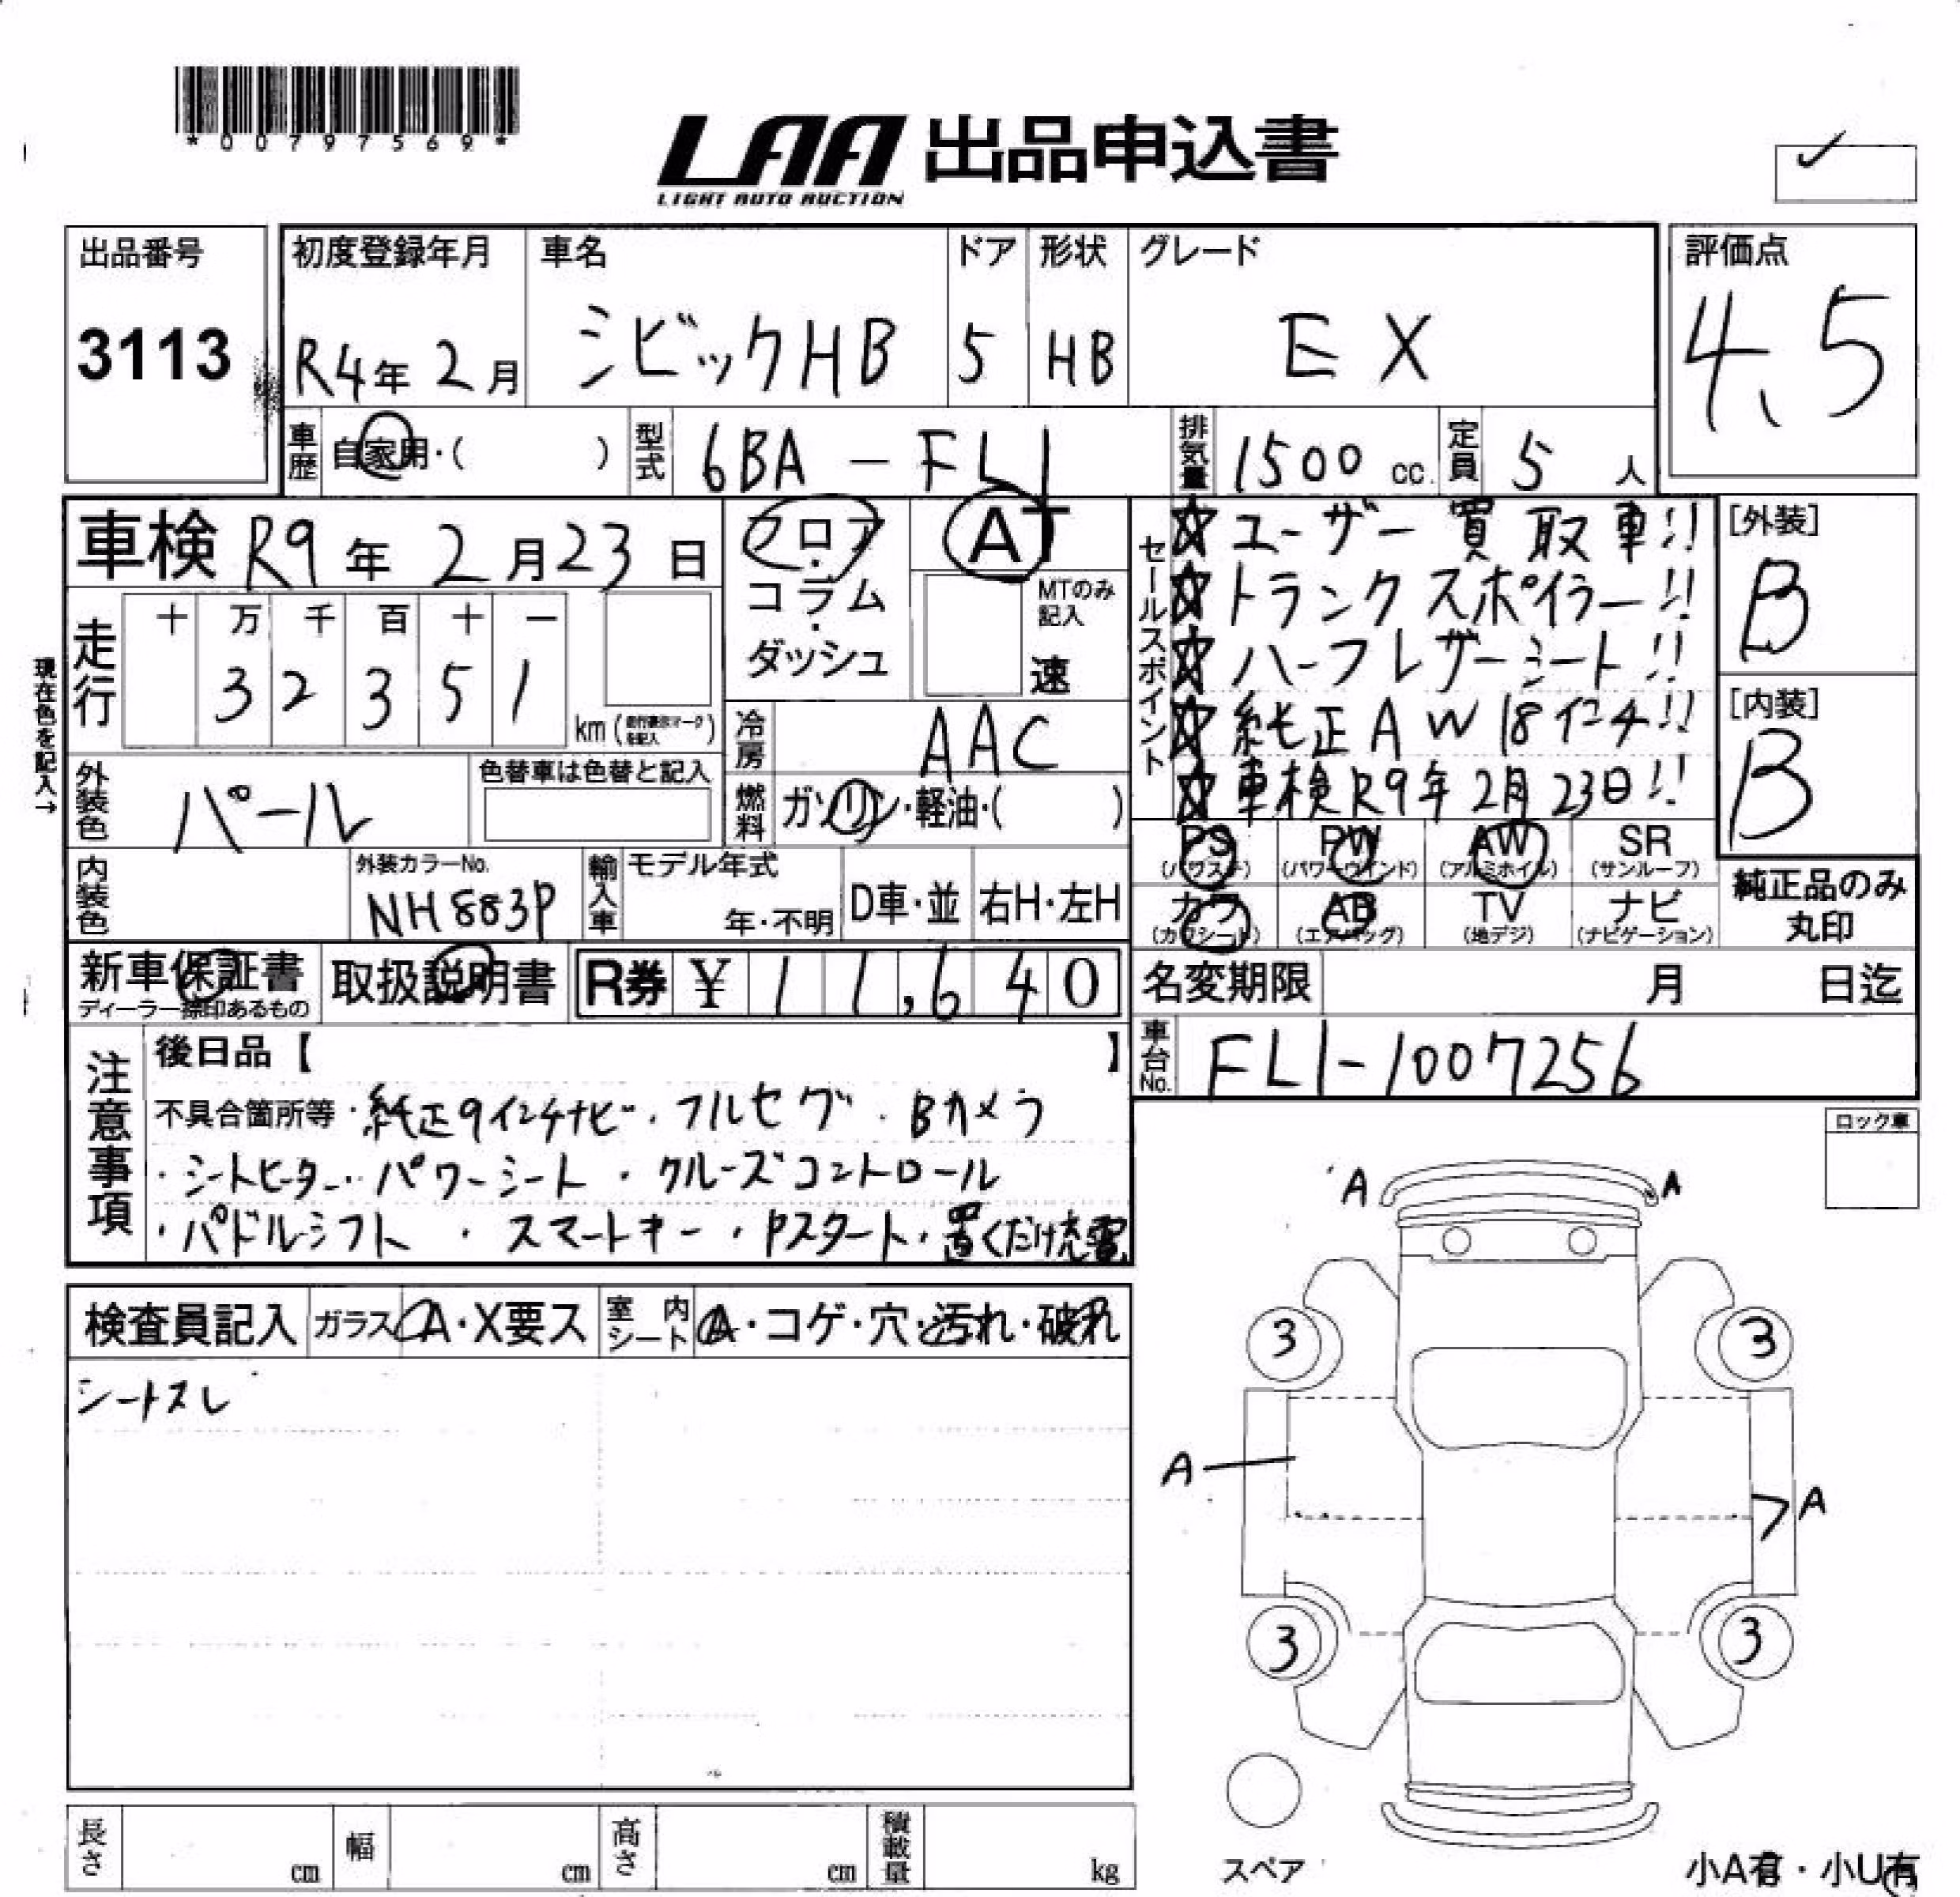 *00797569*
LAA 出品申込書
LIGHT AUTO AUCTION
出品番号
3113
初度登録年月
R4年 2月
車名
シビックHB
ドア
5
形状
HB
グレード
EX
評価点
4.5
車歴 自家用・( )
型式 6BA-FL1
排気量 1500 cc.
定員 5 人
車検 R9年 2月23日
フロア・コラム・ダッシュ
AT
MTのみ記入
速
セールスポイント
☆ユーザー買取車!!
☆トランクスポイラー!!
☆ハーフレザーシート!!
☆純正AW18インチ!!
☆車検R9年2月23日!!
[外装]
B
[内装]
B
現在色を記入→
走行
十 万 千 百 十 一
3 2 3 5 1
km
冷房 AAC
外装色 パール
色替車は色替と記入
燃料 ガソリン・軽油・( )
内装色
外装カラーNo.
NH883P
輸入車
モデル年式
年・不明
D車・並
右H・左H
PS (パワステ)
PW (パワーウインド)
AW (アルミホイル)
SR (サンルーフ)
カワ (カワシート)
AB (エアバッグ)
TV (地デジ)
ナビ (ナビゲーション)
純正品のみ
丸印
新車保証書
ディーラー捺印あるもの
取扱説明書
R券 ¥11,640
名変期限 月 日迄
車台No. FL1-1007256
注意事項
後日品【 】
不具合箇所等・純正9インチナビ・フルセグ・Bカメラ
・シートヒーター・パワーシート・クルーズコントロール
・パドルシフト・スマートキー・Pスタート・置くだけ充電
ロック車
検査員記入
ガラス A・X要ス
室内シート A・コゲ・穴・汚れ・破れ
シートスレ
A A
3 3
A A
3 3
スペア
長さ cm
幅 cm
高さ cm
積載量 kg
小A有・小U有